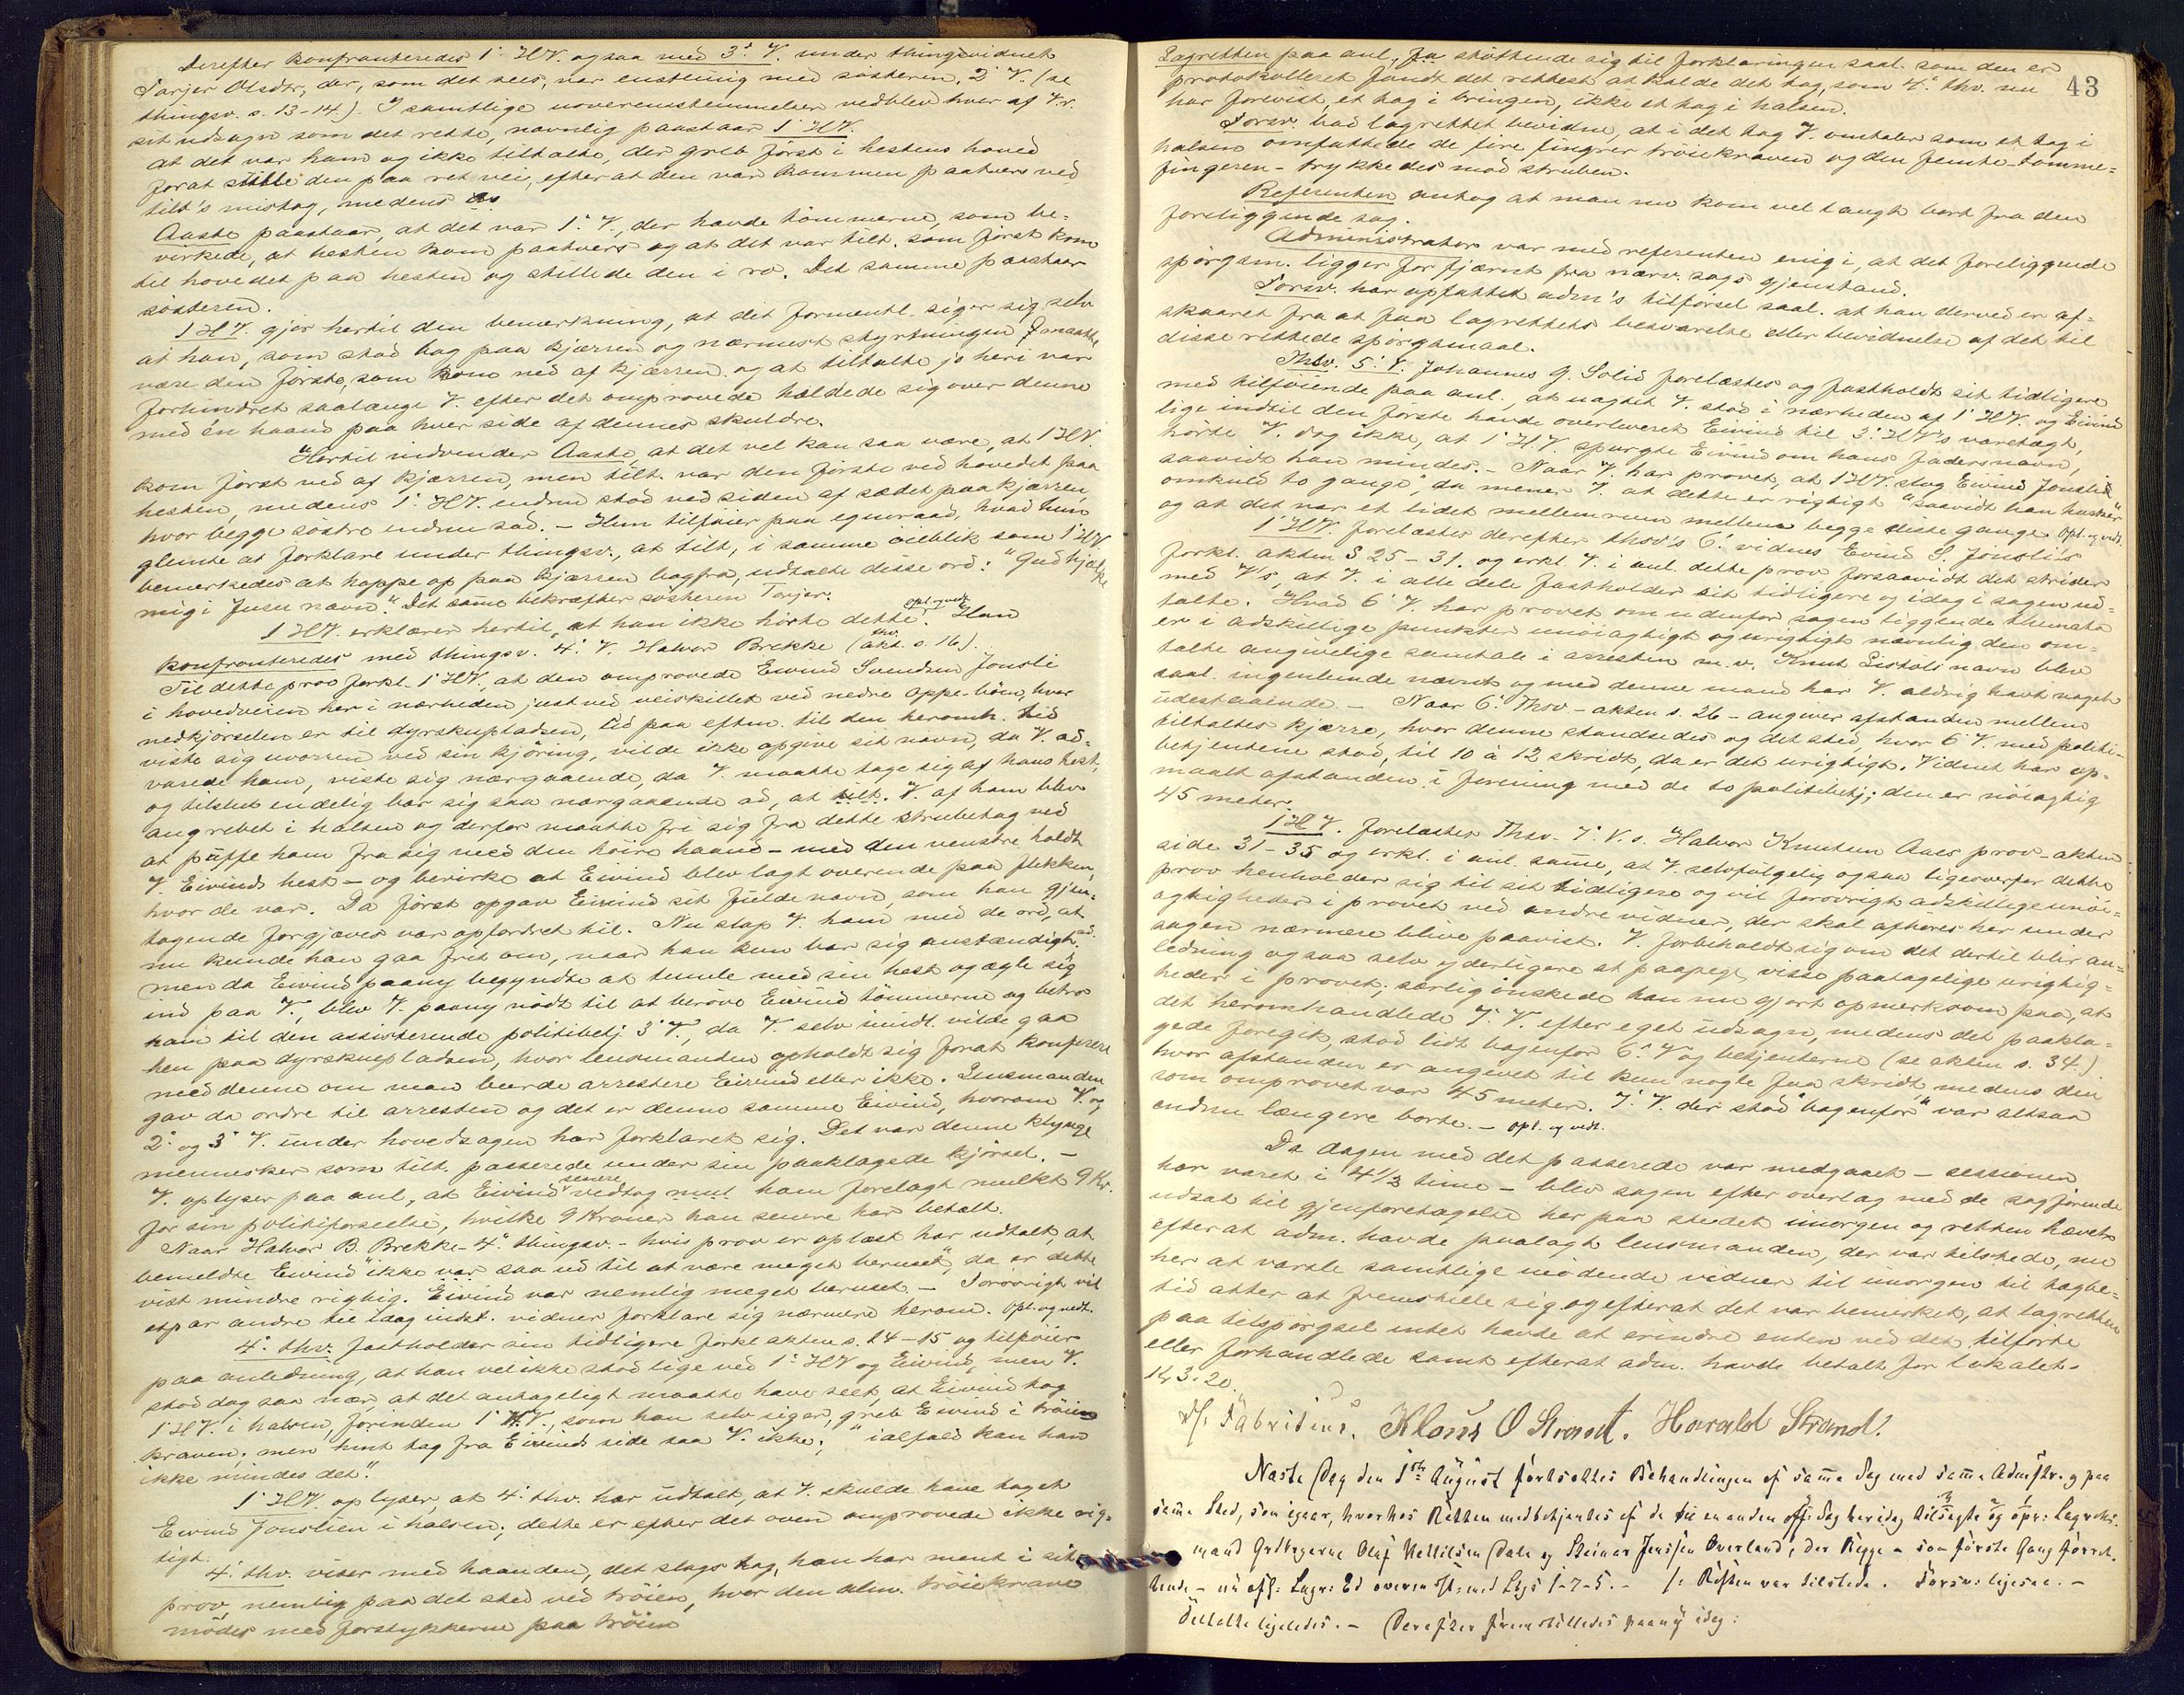 Derefter konfronteredes 1' HV. ogsaa med 3' V. under thingsvidnet
Tarjer Olsdtr, der, som det sees, var enstemig med søsteren, 2' V. (se
thingsv. s. 13-14). I samtlige uoverensstemmelser vedblev hver af V.r.
sit udsagn som det rette, navnlig paastaar 1' HV.
at det var ham og ikke tiltalte, der greb først i hestens hoved
forat stille den paa ret vei, efter at den var kommen paatvers ved
tilt's mistag, medens
Aaste paastaar, at det var 1' V., der havde tømmerne, som be-
virkede, at hesten kom paatvers og at det var tilt. som først kom
til hovedet paa hesten og stillede den i ro. Det samme paastaar
søsteren.
1 HV. gjør hertil den bemerkning, at det formentl. siger sig selv
at han, som stod bag paa kjærren og nærmest styrtningen maatte
være den første, som kom ned af kjærren og at tiltalte jo heri var
forhindret saalænge V. efter det omprovede holdede sig over denne
med én haand paa hver side af dennes skuldre.
Hertil indvender Aaste, at det vel kan saa være, at 1 HV
kom først ned af kjærren, men tilt. var den første ved hovedet paa
hesten, medens 1' HV. endnu stod ved siden af sædet paa kjærren,
hvor begge søstre endnu sad. - Hun tilføier paa egenraad, hvad hun
glemte at forklare under thingsv., at tilt, i samme øieblik som 1' HV
bemerkedes at hoppe op paa kjærren bagfra, udtalte disse ord: "Gud hjælpe
mig i Jesu navn." Det same bekræfter søsteren Tarjer.
1 HV. erklærer hertil, at han ikke hørte dette. opl. og vedt. Han
konfronteredes med thingsv. 4' V. Halvor Brekke (thv. akt. s. 16).
Til dette prov forkl. 1' HV, at den omprovede Eivind Svendsen Jonsli
i hovedveien her i nærheden just ved veiskillet ved nedre Oppebøen, hvor
nedkjørselen er til dyrskupladsen, tid paa efterm. til den heromh. tid
viste sig uvorren ved sin kjøring, vilde ikke opgive sit navn, da V. ad-
varede ham, viste sig nærgaaende, da V. maatte tage sig af hans hest,
og tilslut endelig bar sig saa nærgaaende ad, at V. af ham blev
angrebet i halsen og derfor maatte fri sig fra dette strubetag ved
at puffe ham fra sig med den høire haand - med den venstre holdt
V. Eivinds hest - og bevirke at Eivind blev lagt overende paa flekken,
hvor de var. Da først opgav Eivind sit fulde navn, som han gjen-
tagende forgjæves var opfordret til. Nu slap V. ham med de ord, at
nu kunde han gaa fret om, naar han kun bar sig anstændigt ad.
men da Eivind paany begyndte at tumle med sin hest og ægle sig
ind paa V., blev V. paany nødt til at berøve Eivind tømmerne og betro
ham til den assisterende politibetj 3' V., da V. selv imidl. vilde gaa
hen paa dyrskuepladsen, hvor lensmanden opholdt sig forat konferere
med denne om man burde arrestere Eivind eller ikke. Lensmanden
gav da ordre til arresten og det er denne samme Eivind, hvorom V. og
2' og 3' V. under hovedsagen har forklaret sig. Det var denne klynge
mennesker som tilt. passerede under sin paaklagede kjørsel. -
V. oplyser paa anl, at Eivind senere vedtog ham forelagt mulkt 9 Kr.
for sin politiforseelse, hvilke 9 Kroner han senere har betalt.
Naar Halvor B. Brekke - 4' thingsv. - hvis prov er oplæst har udtalt, at
bemeldte Eivind "ikke var saa ud til at være meget beruset", da er dette
vist mindre rigtig. Eivind var nemlig meget beruset. - Forøvrigt vil
et par andre til idag indst. vidner forklare sig nærmere herom. Opl. og vedt.
4' thv. fastholder sin tidligere forkl akten s. 14-15 og tilføier
paa anledning, at han vel ikke stod lige ved 1' HV og Eivind, men V.
stod dog saa nær, at det antageligt maatte have seet, at Eivind tog
1 HV. i halsen, forinden 1' HV., som han selv siger, greb Eivind i trøie
kraven; men hint tag fra Eivinds side saa V. ikke; "ialfald kan han
ikke mindes det."
1' HV. oplyser, at 4' thv. har udtalt, at V. skulde have taget
Eivind Jonslien i halsen; dette er efter det oven omprovede ikke rig-
tigt.
4' thv. viser med haanden, det slags tag, han har ment i sit
prov, nemlig paa det sted ved trøien, hvor den alm. trøiekrave
mødes med forstykkerne paa trøien
43
Lagretten paa anl. fra støttende sig til forklaringen saal. som den er
protokolleret fandt det rettest at kalde det tag, som 4' thv. nu
har forevist, et tag i bringen, ikke et tag i halsen.
Forsv. bad lagrettet bevidne, at i det tag V. omtaler som et tag i
halsen omfattede de fire fingrer trøiekraven og den femte - tomme-
fingeren - trykkedes mod struben.
Referenten antog at man nu kom vel langt bort fra den
foreliggende sag.
Administrator var med referenten enig i, at det foreliggende
spørgsm. ligger for fjærnt fra nærv. sags gjenstand.
Forsv. har opfattet adm's tilførsel saal. at han derved er af-
skaaret fra at faa lagrettets besvarelse eller bevidnelse af det til
disse rettede spørgsmaal.
Thsv. 5' V. Johannes G. Solid forelæstes og fastholdt sit tidligere
med tilføiende paa anl., at uagtet V. stod i nærheden af 1' HV. og Eivind
lige indtil den første havde overleveret Eivind til 3' HV's varetægt,
hørte V. dog ikke, at 1' HV. spurgte Eivind om hans fadersnavn,
saavidt han mindes. - Naar V. har provet, at 1 HV. slog Eivind Jonslid
omkuld to gange", da mener V. at dette er rigtigt "saavidt han husker"
og at det var et lidet mellemrum mellem begge disse gange Opl. og vedt.
1' HV. forelæstes derefter thsv's 6' vidnes Eivind S. Jonsli's
forkl. akten S 25-31. og erkl. V. i anl. dette prov forsaavidt det strider
med V's, at V. i alle dele fastholder sit tidligere og idag i sagen ud-
talte. Hvad 6' V. har provet om udenfor sagen liggende themata
er i adskillige punkter unøiagtigt og urigtigt navnlig den om-
talte angivelige samtale i arresten m. v. Knut Listols navn blev
saal. ingenlunde nævnt og med denne mand har V. aldrig havt noget
udestaaende. - Naar 6' Thsv. - akten s. 26 - angiver afstanden mellem
tiltaltes kjærre, hvor denne standsedes og det sted, hvor 6' V. med politi-
betjentene stod, til 10 à 12 skridt, da er det urigtigt. Vidnet har op-
maalt afstanden i forening med de to politibetj; den er nøiagtig
45 meter.
1 HV. forelæstes Thsv. 7' V. s. Halvor Knutsen Aaes prov - akten
side 31-35 og erkl. i anl. same, at V. selvfølgelig ogsaa ligeoverfor dette
prov henholder sig til sit tidligere og vil forøvrigt adskillige unøi-
agtigheder i provet ved andre vidner, der skal afhøres her under
sagen nærmere blive paavist. V. forbeholdt sig om det dertil blir an-
ledning ogsaa selv yderligere at paapege visse paatagelige urigtig-
heder i provet; særlig ønskede han nu gjort opmerksom paa, at
det heromhandlede 7' V. efter eget udsagn, medens det paakla-
gede foregik, stod lidt bagenfor 6' V og betjenterne (se akten s. 34)
hvor afstanden er angivet til kun nogle faa skridt, medens den
som omprovet var 45 meter. 7' V. der stod "bagenfor" var altsaa
endnu længere borte. - Opl. og vedt.
Da dagen med det passerede var medgaaet - sessionen
har varet i 4 1/3 time - blev sagen efter overlæg med de sagførende
udsat til gjenforetagelse her paa stedet imorgen og retten hævet
efterat adm. havde paalagt lensmanden, der var tilstede, nu
her at varsle samtlige mødende vidner til imorgen til dagbe-
tid atter at fremstille sig og efterat det var bemerket, at lagretten
paa tilspørgsel intet havde at erindre enten ved det tilførte
eller forhandlede samt efterat adm. havde betalt for lokalet.
Kr 3.20.
Fabritius. Klaus O Strand. Harald Strand.
Næste Dag den 1ste August fortsattes Behandlingen af samme Sag med samme Admstr. og paa
samme Sted, som igaar, hvorhos Retten medbetjentes af de til en anden Sag her idag tilsagte og opr: Lagrettes-
mænd Grdbrgerne Olaf Kettilsen Dale og Steinar Jenssen Overland, der Begge - som første Gang forret-
tende - nu afl: Lagr: Ed overensst: med Lgs 1-7-5. - Retten var tilstede. Forsv: ligesaa. -
Tiltalte ligeledes. - Derefter fremstilledes paany idag: